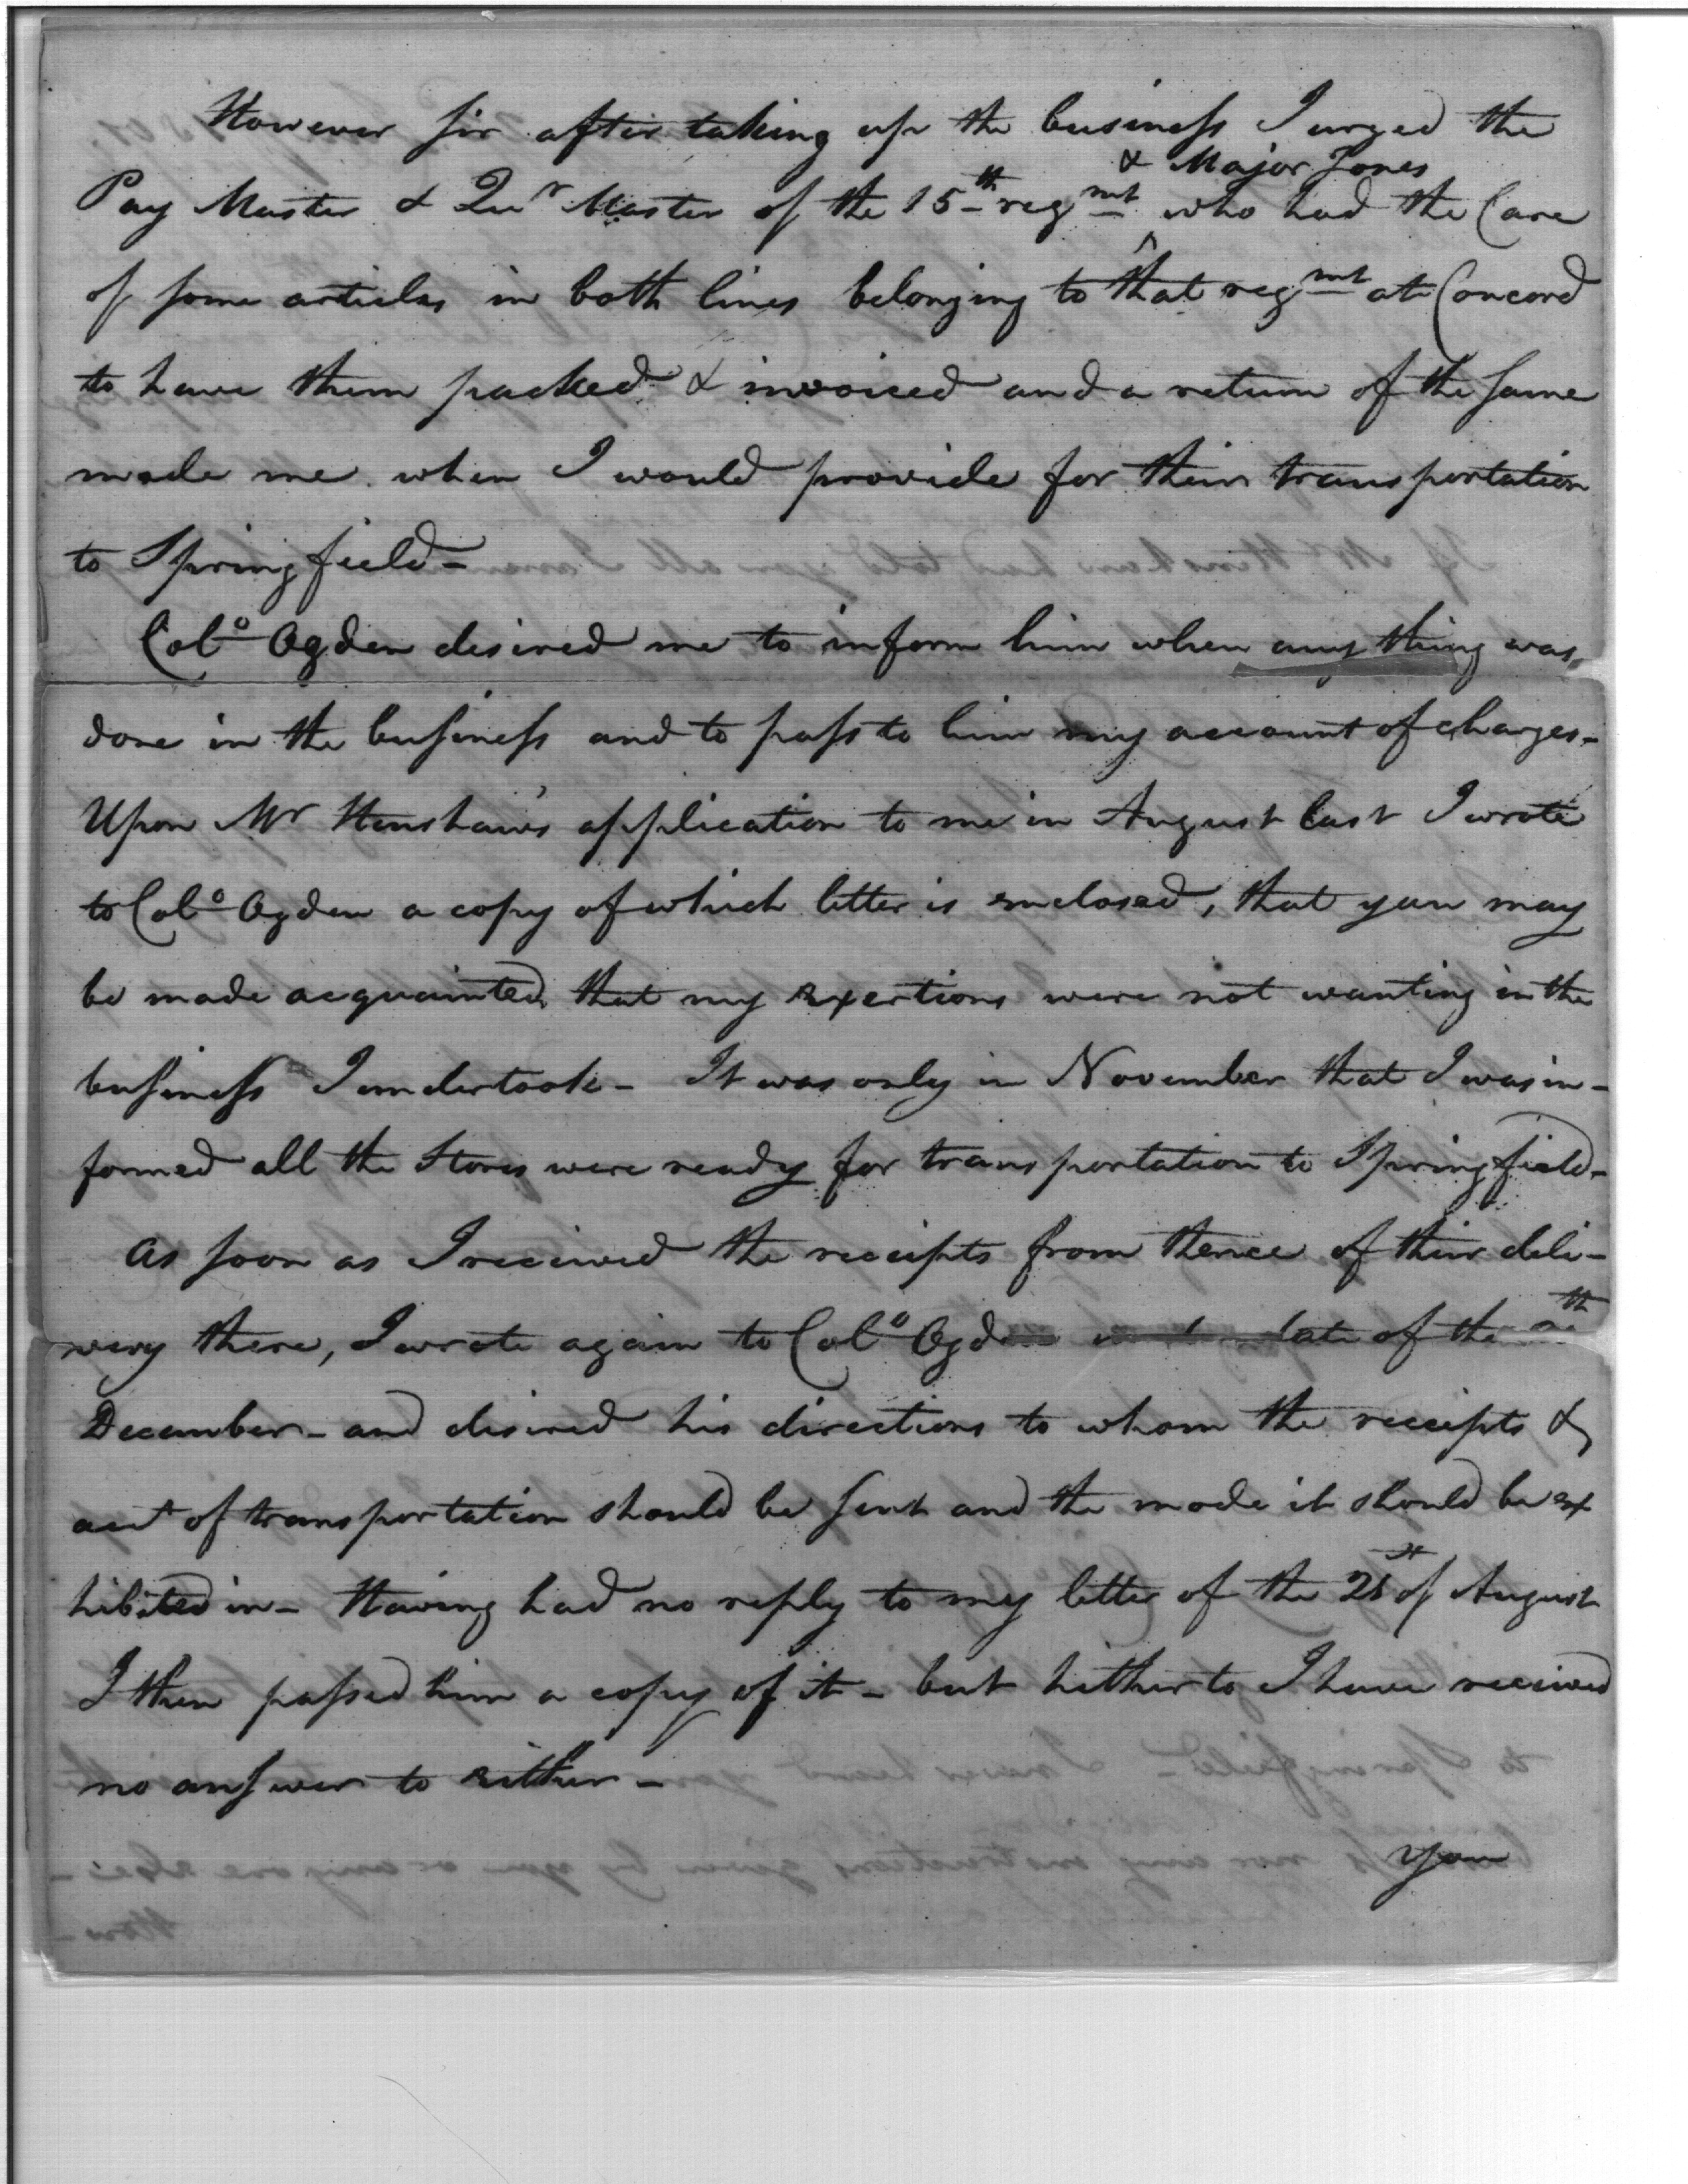 However sir after taking up the business I urged the
& Major Jones
Pay Master & Qur Master of the 15th regmt who had the Care
of some articles in both lines belonging to that regmt at Concord
to have them packed & invoiced and a return of the same
made me when I would provide for their transportation
to Springfield -
Colo Ogden desired me to inform him when any thing was
done in the business and to pass to him my account of charges -
Upon Mr Henshaw's application to me in August last I wrote
to Colo Ogden a copy of which letter is enclosed, that you may
be made acquainted that my exertions were not wanting in the
business I undertook - It was only in November that I was in-
formed all the Stores were ready for transportation to Springfield -
As soon as I received the receipts from thence of their deli-
very there, I wrote again to Colo Ogden date of the
December - and desired his directions to whom the receipts &
acct of transportation should be sent and the mode it should be ex
hibited in - Having had no reply to my letter of the 21st of August
I then passed him a copy of it - but hitherto I have received
no answer to either -
your